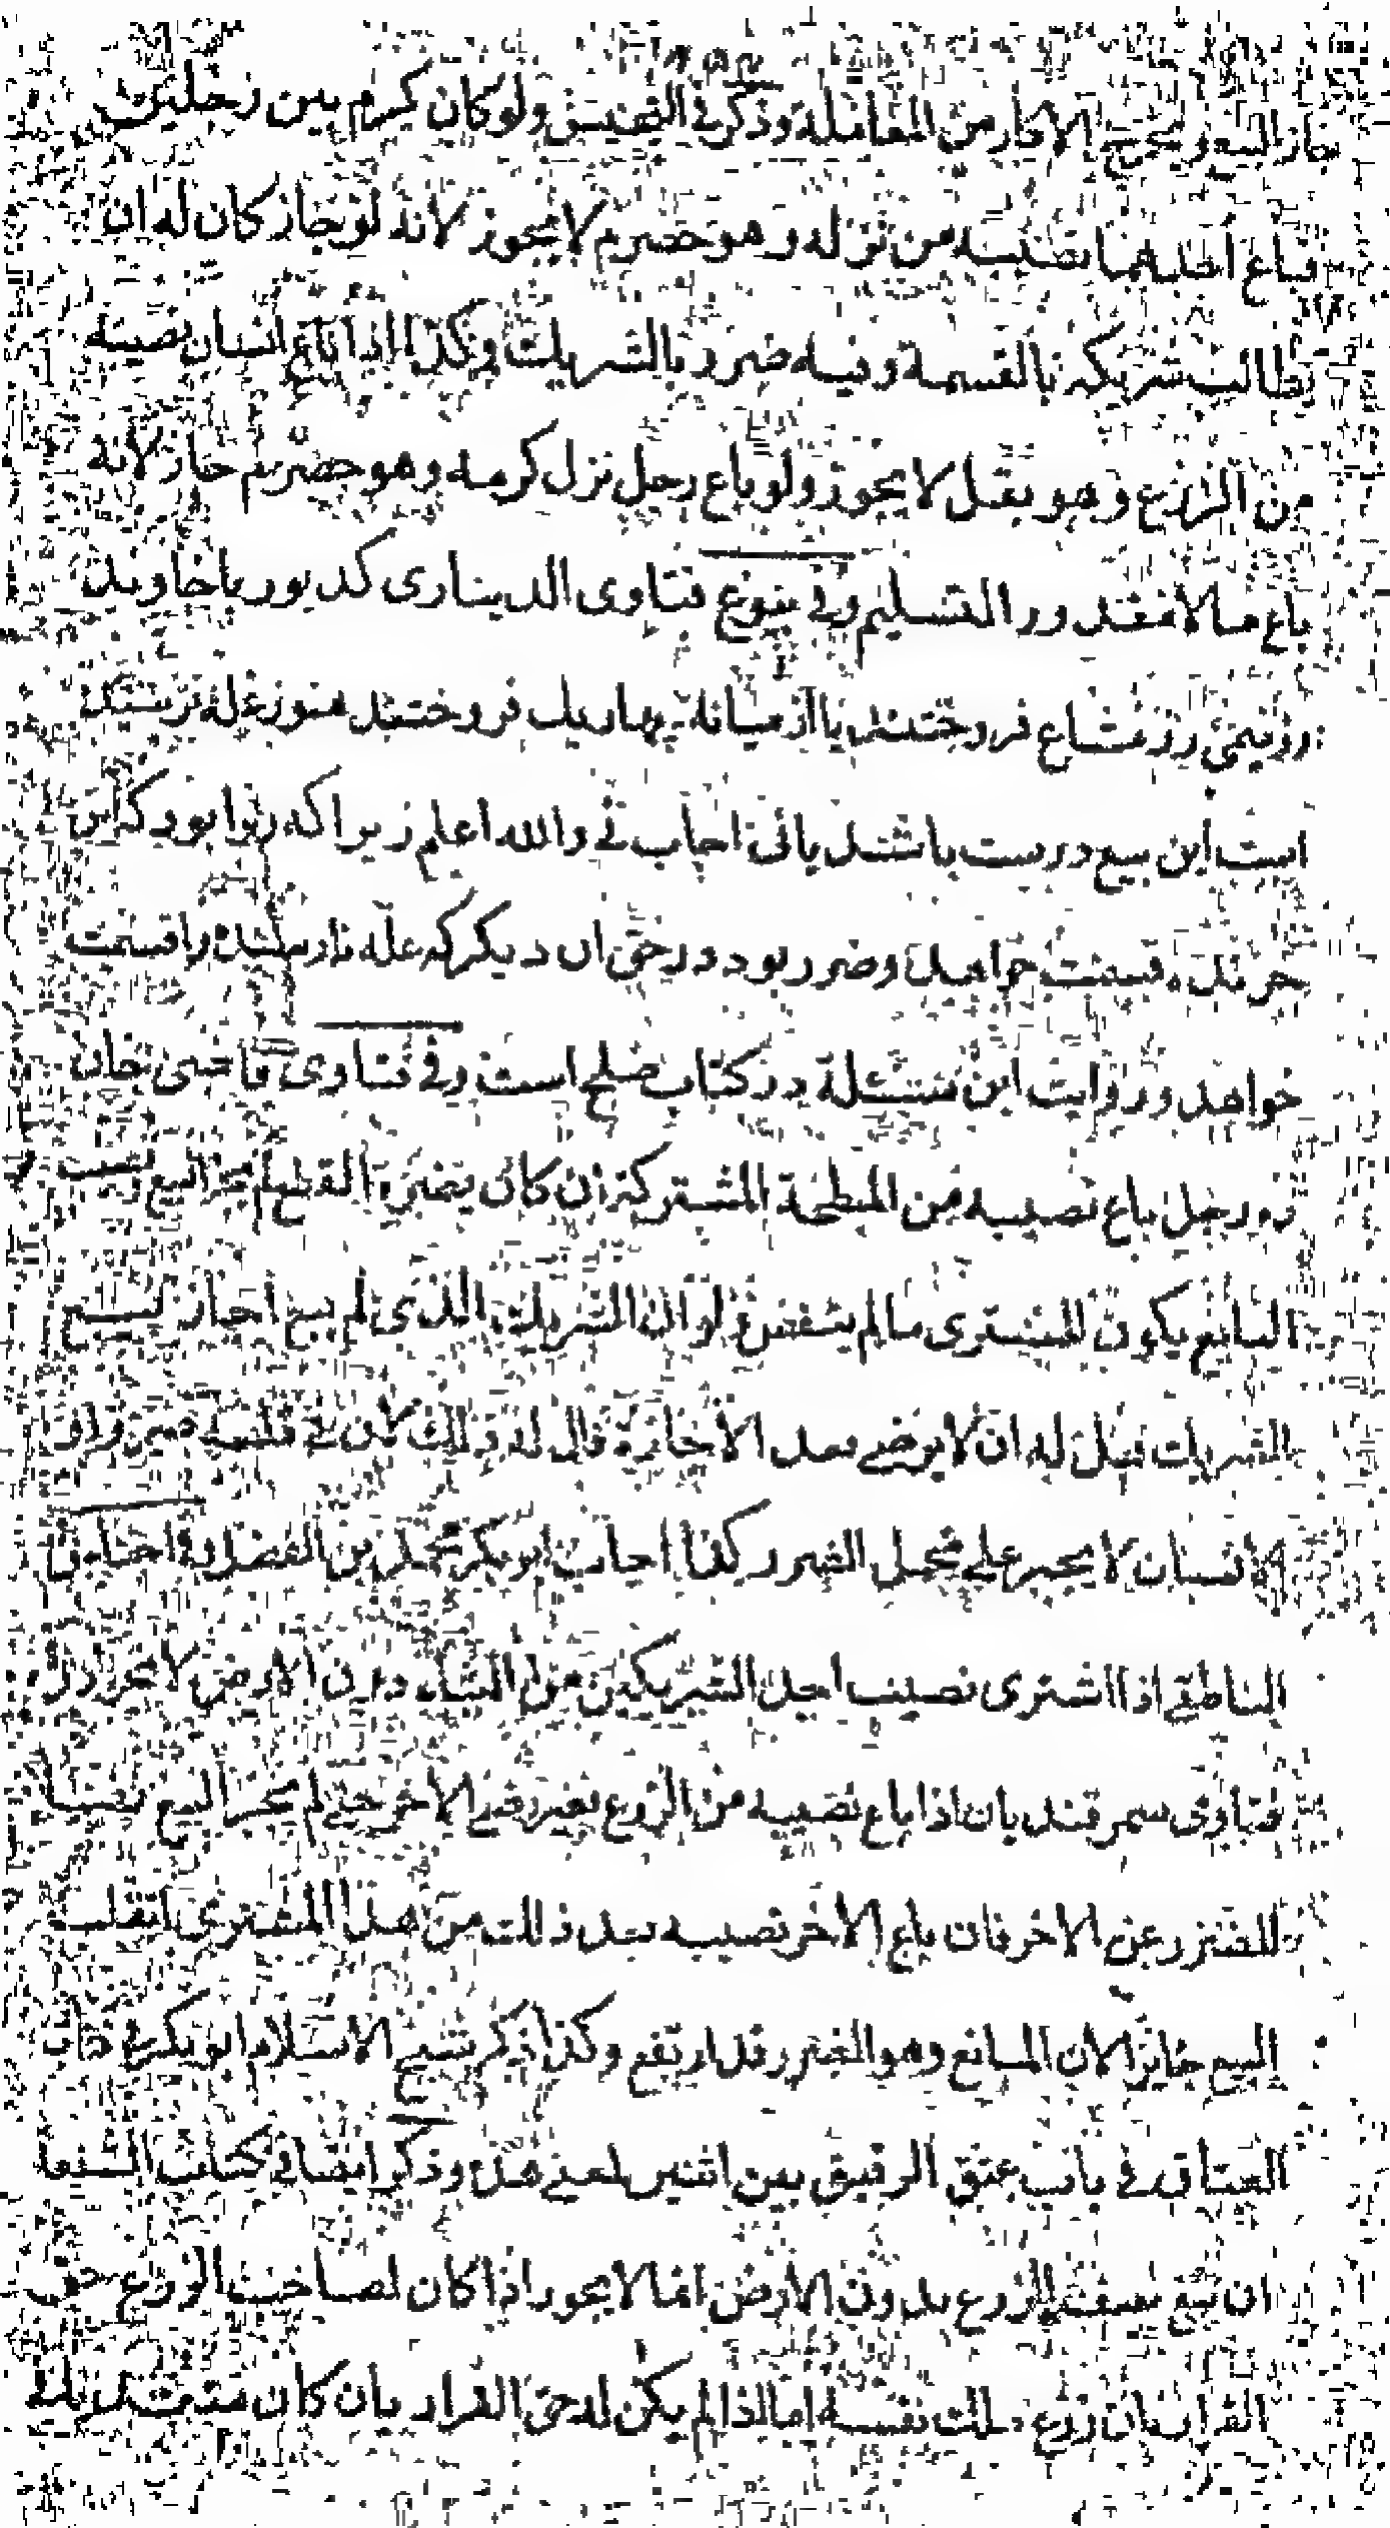 جاز البيع ويخرج الاكار من المعاملة وذكر في التجنيس ولو كان كرم بين رجلين
فباع احدهما نصيبه من نزله وهو حصرم لا يجوز لانه لو جاز كان له ان
يطالب شريكه بالقسمة وفيه ضرر بالشريك وكذا اذا باع انسان نصيبه
من الزرع وهو بقل لا يجوز ولو باع رجل نزل كرمه وهو حصرم جاز لانه
باع مالا مقدور التسليم وفي بيوع فتاوى الديناري كديور يا خاوند
رز نيمئ رز مشاع فروختند يا از ميانه چهاريك فروختند هنوز غله نرسيده
است اين بيع درست باشد يا ني اجاب ني والله اعلم زيرا كه ربوا بود كه اين
خرنده قسمت خواهد وضرر بود در حق ان ديكر كه غله نارسيده را قسمت
خواهد وروايت اين مسئلة در كتاب صلح است وفي فتاوى قاضى خان
ره رجل باع نصيبه من المبطخة المشتركة ان كان يضره القلع لم يجز البيع نصيب
البائع يكون للمشترى ما لم يفسخ ولو ان الشريك الذى لم يبع اجاز بيع
الشريك قيل له ان لا يرضى بعد الاجازة قال له ذلك لان في قلعه ضررا و
الانسان لا يجبر على تحمل الضرر كذا اجاب ابو بكر محمد بن الفضل وفي اجناس
الناطفى اذا اشترى نصيب احد الشريكين من البناء دون الارض لا يجوز وفى
فتاوى سمرقند بان اذا باع نصيبه من الزرع بغير رضى الاخر حتى لم يجز البيع نفيا
للضرر عن الاخر فان باع الاخر نصيبه بعد ذلك من هذا المشترى انقلب
البيع جائزا لان المانع وهو الضرر قد ارتفع وكذا ذكر شيخ الاسلام ابو بكر في كتاب
العتاق في باب عتق الرقيق بين اثنين لمعنى هذا وذكر ايضا في كتاب الشفعة
ان بيع نصف الزرع بدون الارض انما لا يجوز اذا كان لصاحب الزرع حق
القرار بان زرع ملك نفسه اما اذا لم يكن له حق القرار بان كان متعديا في